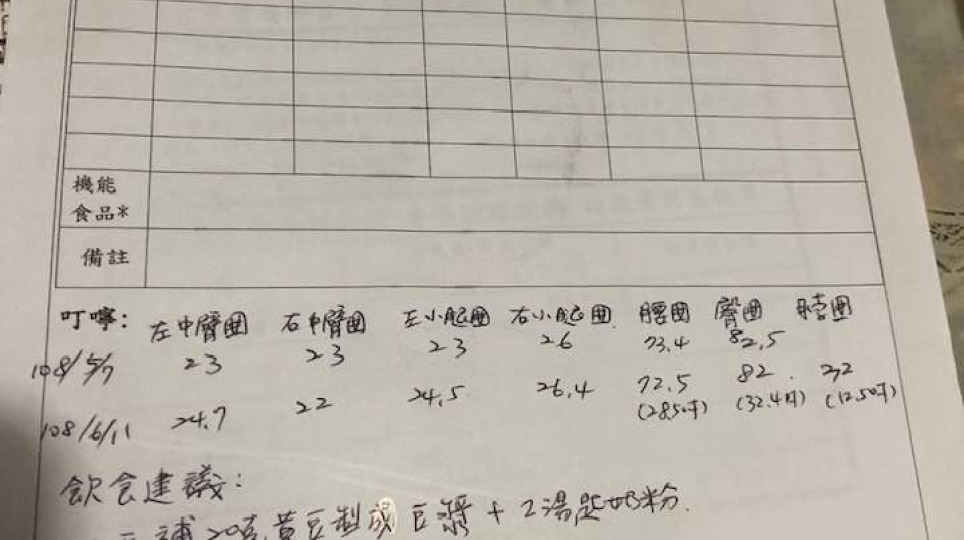 機能
食品*
備註
叮嚀: 左中臂圍 右中臂圍 左小腿圍 右小腿圍 腰圍 臀圍
108/5/7 23 23 23 26 73.4 82.5
108/6/11 24.7 22 24.5 26.4 72.5 82
(28.5吋) (32.4吋) (12.5吋)
飲食建議:
補20克黃豆製成豆漿 + 2湯匙奶粉.